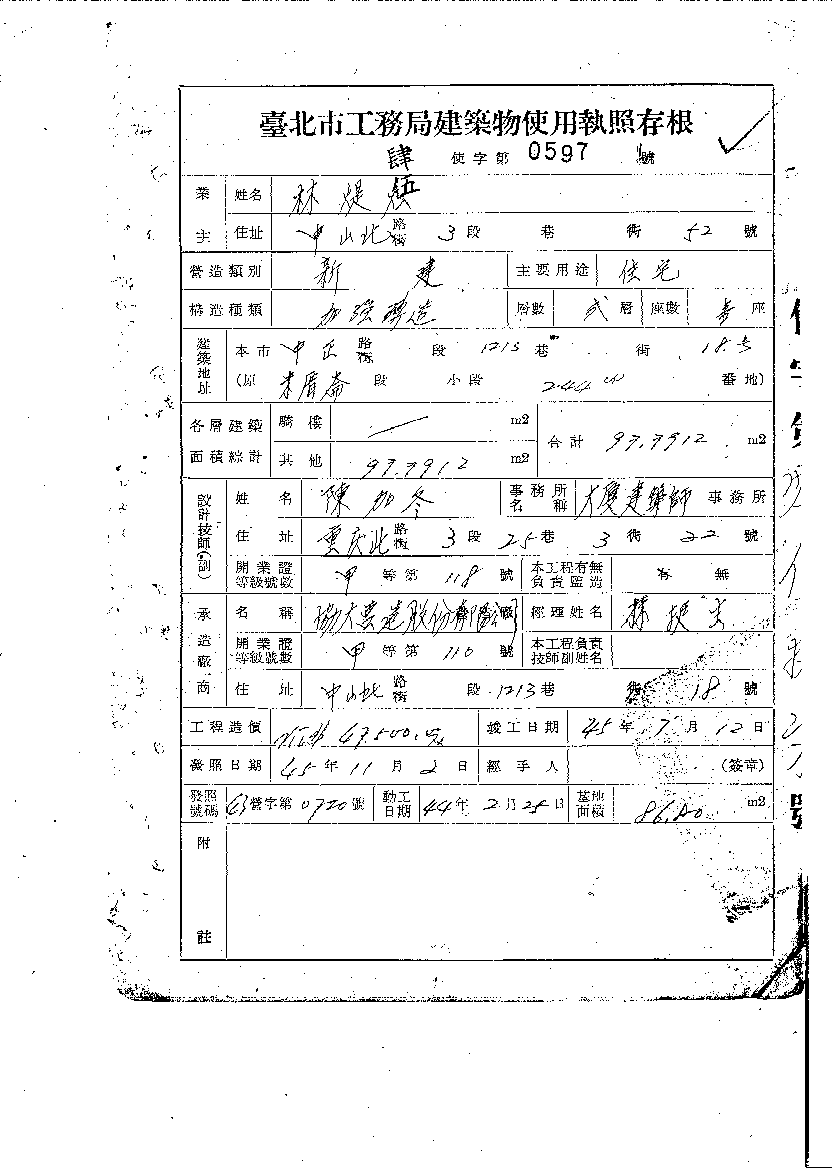 臺北市工務局建築物使用執照存根
肆伍 使字第 0597 號
業主 姓名 林
住址 中山北 路街 3 段 巷 街 52 號
營造類別 新建 主要用途 住宅
構造種類 加強磚造 層數 貳 層 座數 壹 座
建築地址 本市 中正 路街 段 1213 巷 街 18号
(原 段 小段 244 番地)
各層建築面積綜計 騎樓 m2 合計 97.7912 m2
其他 97.7912 m2
設計技師(副) 姓名 陳加冬 事務所名稱 大廈建築師 事務所
住址 重庆北 路街 3 段 25 巷 3 街 22 號
開業證等級號數 甲 等第 118 號 本工程有無負責監造 有 無
承造廠商 名稱 協大營造股份有限公司 經理姓名 林
開業證等級號數 甲 等第 110 號 本工程負責技師副姓名
住址 中山北 路街 段 1213 巷 街 18 號
工程造價 47,500. 竣工日期 45 年 7 月 12 日
發照日期 45 年 11 月 2 日 經手人 (簽章)
發照號碼 營字第 0720 號 動工日期 44 年 2 月 25 日 基地面積 86.40 m2
附註